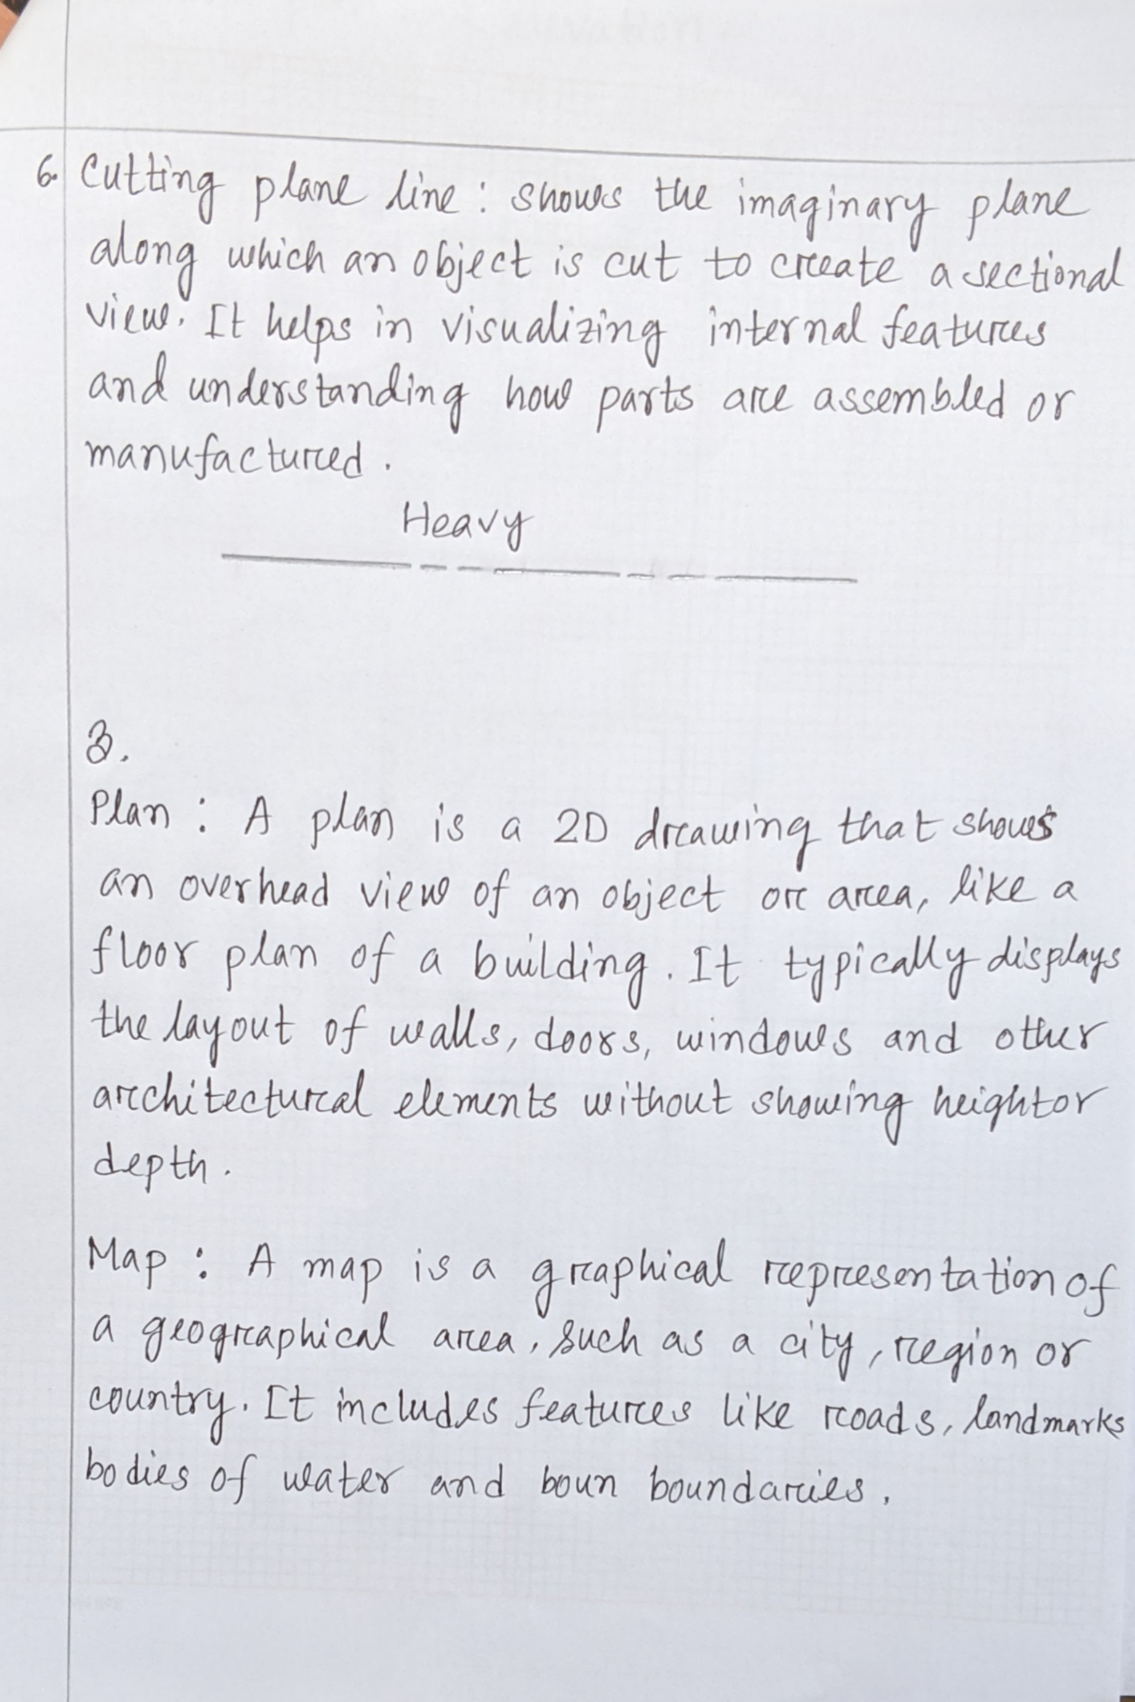 6. Cutting plane line : shows the imaginary plane
along which an object is cut to create a sectional
view. It helps in visualizing internal features
and understanding how parts are assembled or
manufactured.
Heavy
3.
Plan : A plan is a 2D drawing that shows
an overhead view of an object or area, like a
floor plan of a building. It typically displays
the layout of walls, doors, windows and other
architectural elements without showing height or
depth.
Map : A map is a graphical representation of
a geographical area, such as a city, region or
country. It includes features like roads, landmarks
bodies of water and boun boundaries.